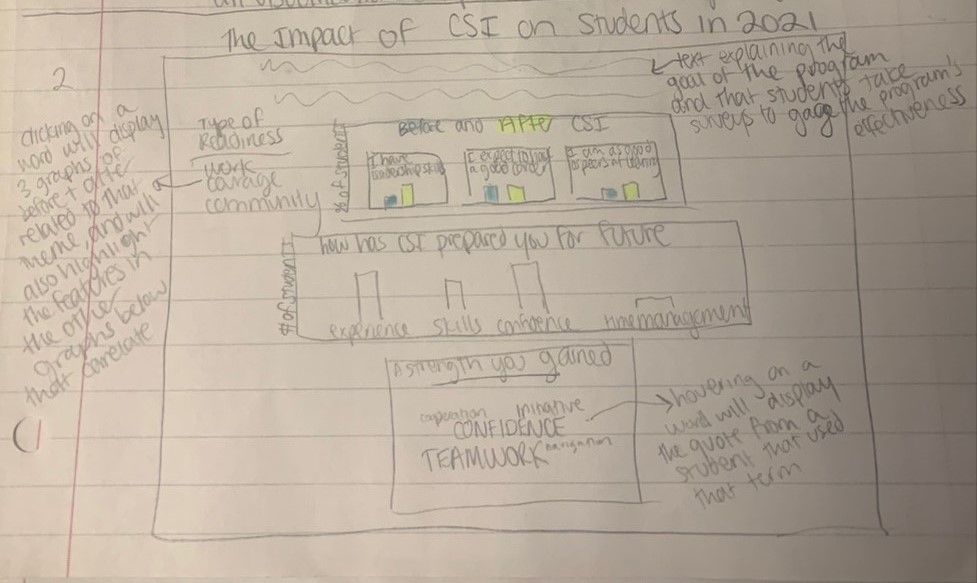 The Impact of CSI on Students in 2021
2
text explaining the
goal of the program
and that students take
surveys to gage the program's
effectiveness
clicking on a
word will display
3 graphs of
before + after
related to that
meme, and will
also highlight
the features in
the other
graphs below
that correlate
Type of
Readiness
work
courage
community
# of students
Before and After CSI
I have
leadership skills
I expect to
a good
I am as good
as peers at learning
# of students
how has CSI prepared you for future
experience skills confidence time management
A strength you gained
cooperation Initiative
CONFIDENCE
TEAMWORK navigation
hovering on a
word will display
the quote from a
student that used
that term